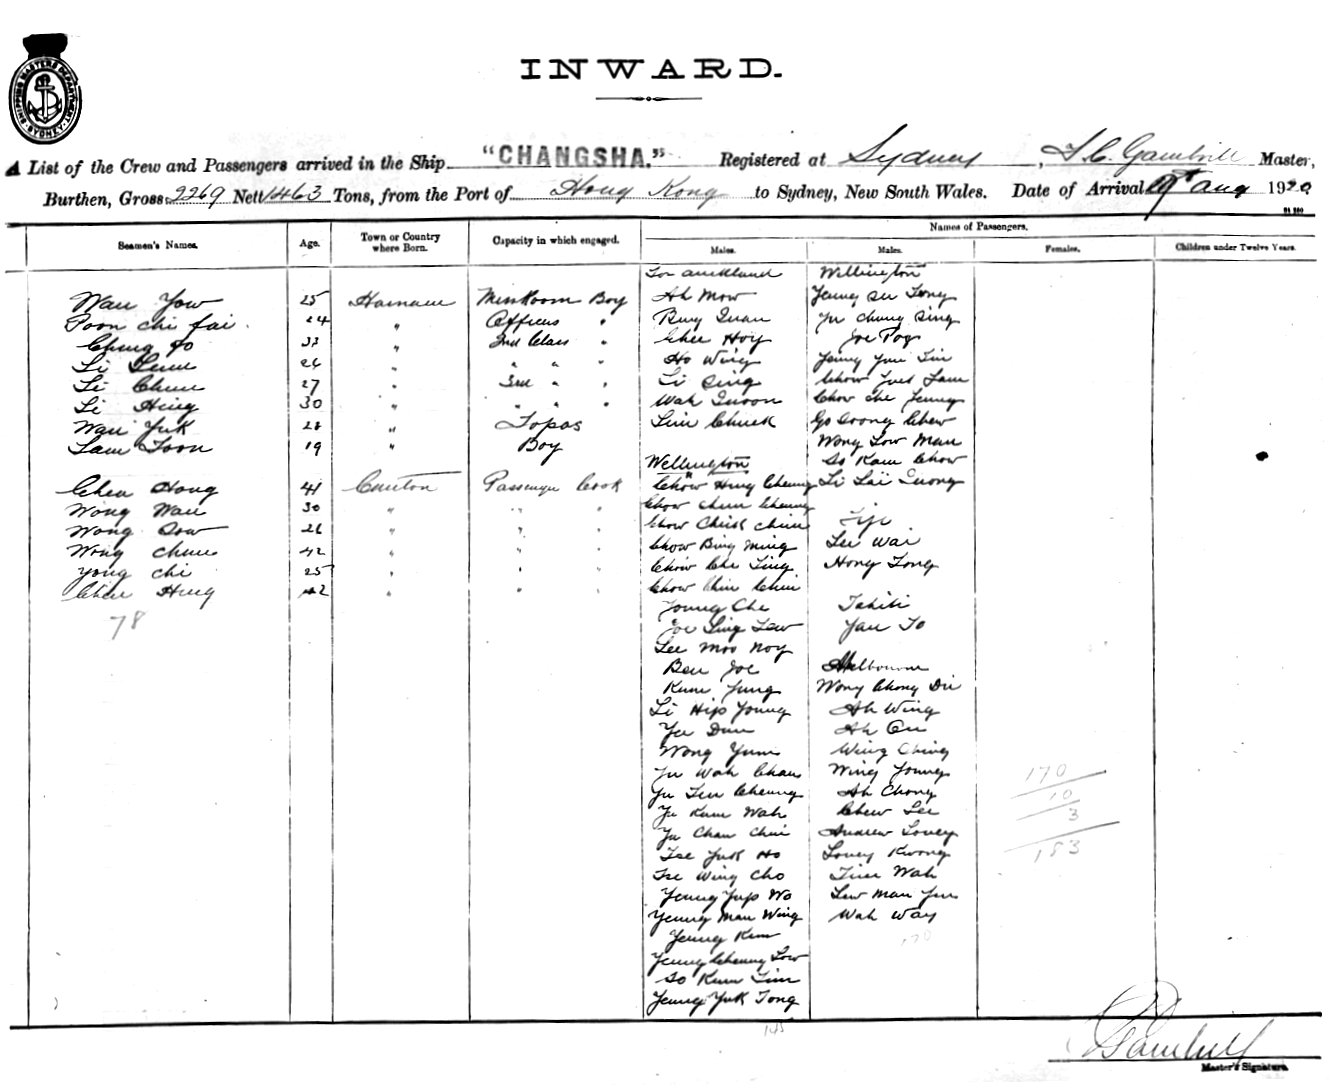 SHIPPING MASTERS DEPARTMENT
SYDNEY
INWARD.
A List of the Crew and Passengers arrived in the Ship "CHANGSHA." Registered at Sydney, Master,
Burthen, Gross 2269 Nett 1463 Tons, from the Port of Hong Kong to Sydney, New South Wales. Date of Arrival 19th Aug 1920
Seamen's Names. Age. Town or Country where Born. Capacity in which engaged. Names of Passengers.
Males. Males. Females. Children under Twelve Years.
For Auckland Wellington
Wan Yow 25 Hainan Messroom Boy Ah Mow
Poon Chi Fai 24 " Officers " Yu Chung Sing
33 " 2nd Class " Chee Hoy Joe Poy
Li 26 " " " Ho Wing
Li Chun 27 " 3rd " " Li Sing
Li Hing 30 " " " " Wah
Wan Yuk 28 " Topas Lim Chuck
Lam Toon 19 " Boy Wong Low Man
Wellington So Kam Chow
Chea Hong 41 Canton Passenger Cook Chow Hing Cheung
Wong Wan 30 " " " Chow Chun Cheung
Wong Sow 26 " " " Chow Chick Chim Fiji
Wong Chun 42 " " " Chow Bing Ming Lee Wai
Yong Chi 25 " " " Chow Che Ting Hong Tong
42 " " " Chow Chin Chin
78 Young Che Tahiti
Joe Sing Lew Yau To
Lee Moo Noy
Ben Joe Melbourne
Kum Jung Wong Chong Din
Li Hip Young Ah Wing
Yu Dun
Wong Yum Wing Ching
Yu Wah Chan Wing Young 170
Yu Tin Cheung Ah Chong 10
Yu Kum Wah Chew Lee 3
Yu Chan Chui Andrew Louey 183
Tse Yuk Ho Louey Kwong
Tse Wing Cho Wah
Yeung Yup Wo Lew Man Yun
Yeung Man Wing Wah Way
Yeung Kim 170
Yeung Cheung Low
So Kum Tim
Yeung Yuk Tong
Master's Signature